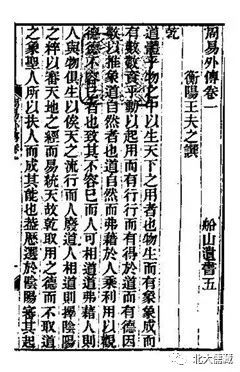 周易外傳卷一
船山遺書五
衡陽王夫之譔
乾
道體乎物之中以生天下之用者也物生而有象象成而
有數數資乎動以起用而有行行而有得於道而有德因
數以推象道自然者也道自然而弗藉於人乘利用以觀
德德不容已者也致其不容已而人可相道道弗藉人則
人與物俱生以俟天之流行而人廢道人相道則擇陰陽
之粹以審天地之經而易統天故乾取用之德而不取道
之象聖人所以扶人而成其能也蓋歷選於陰陽審其起
北大儒藏